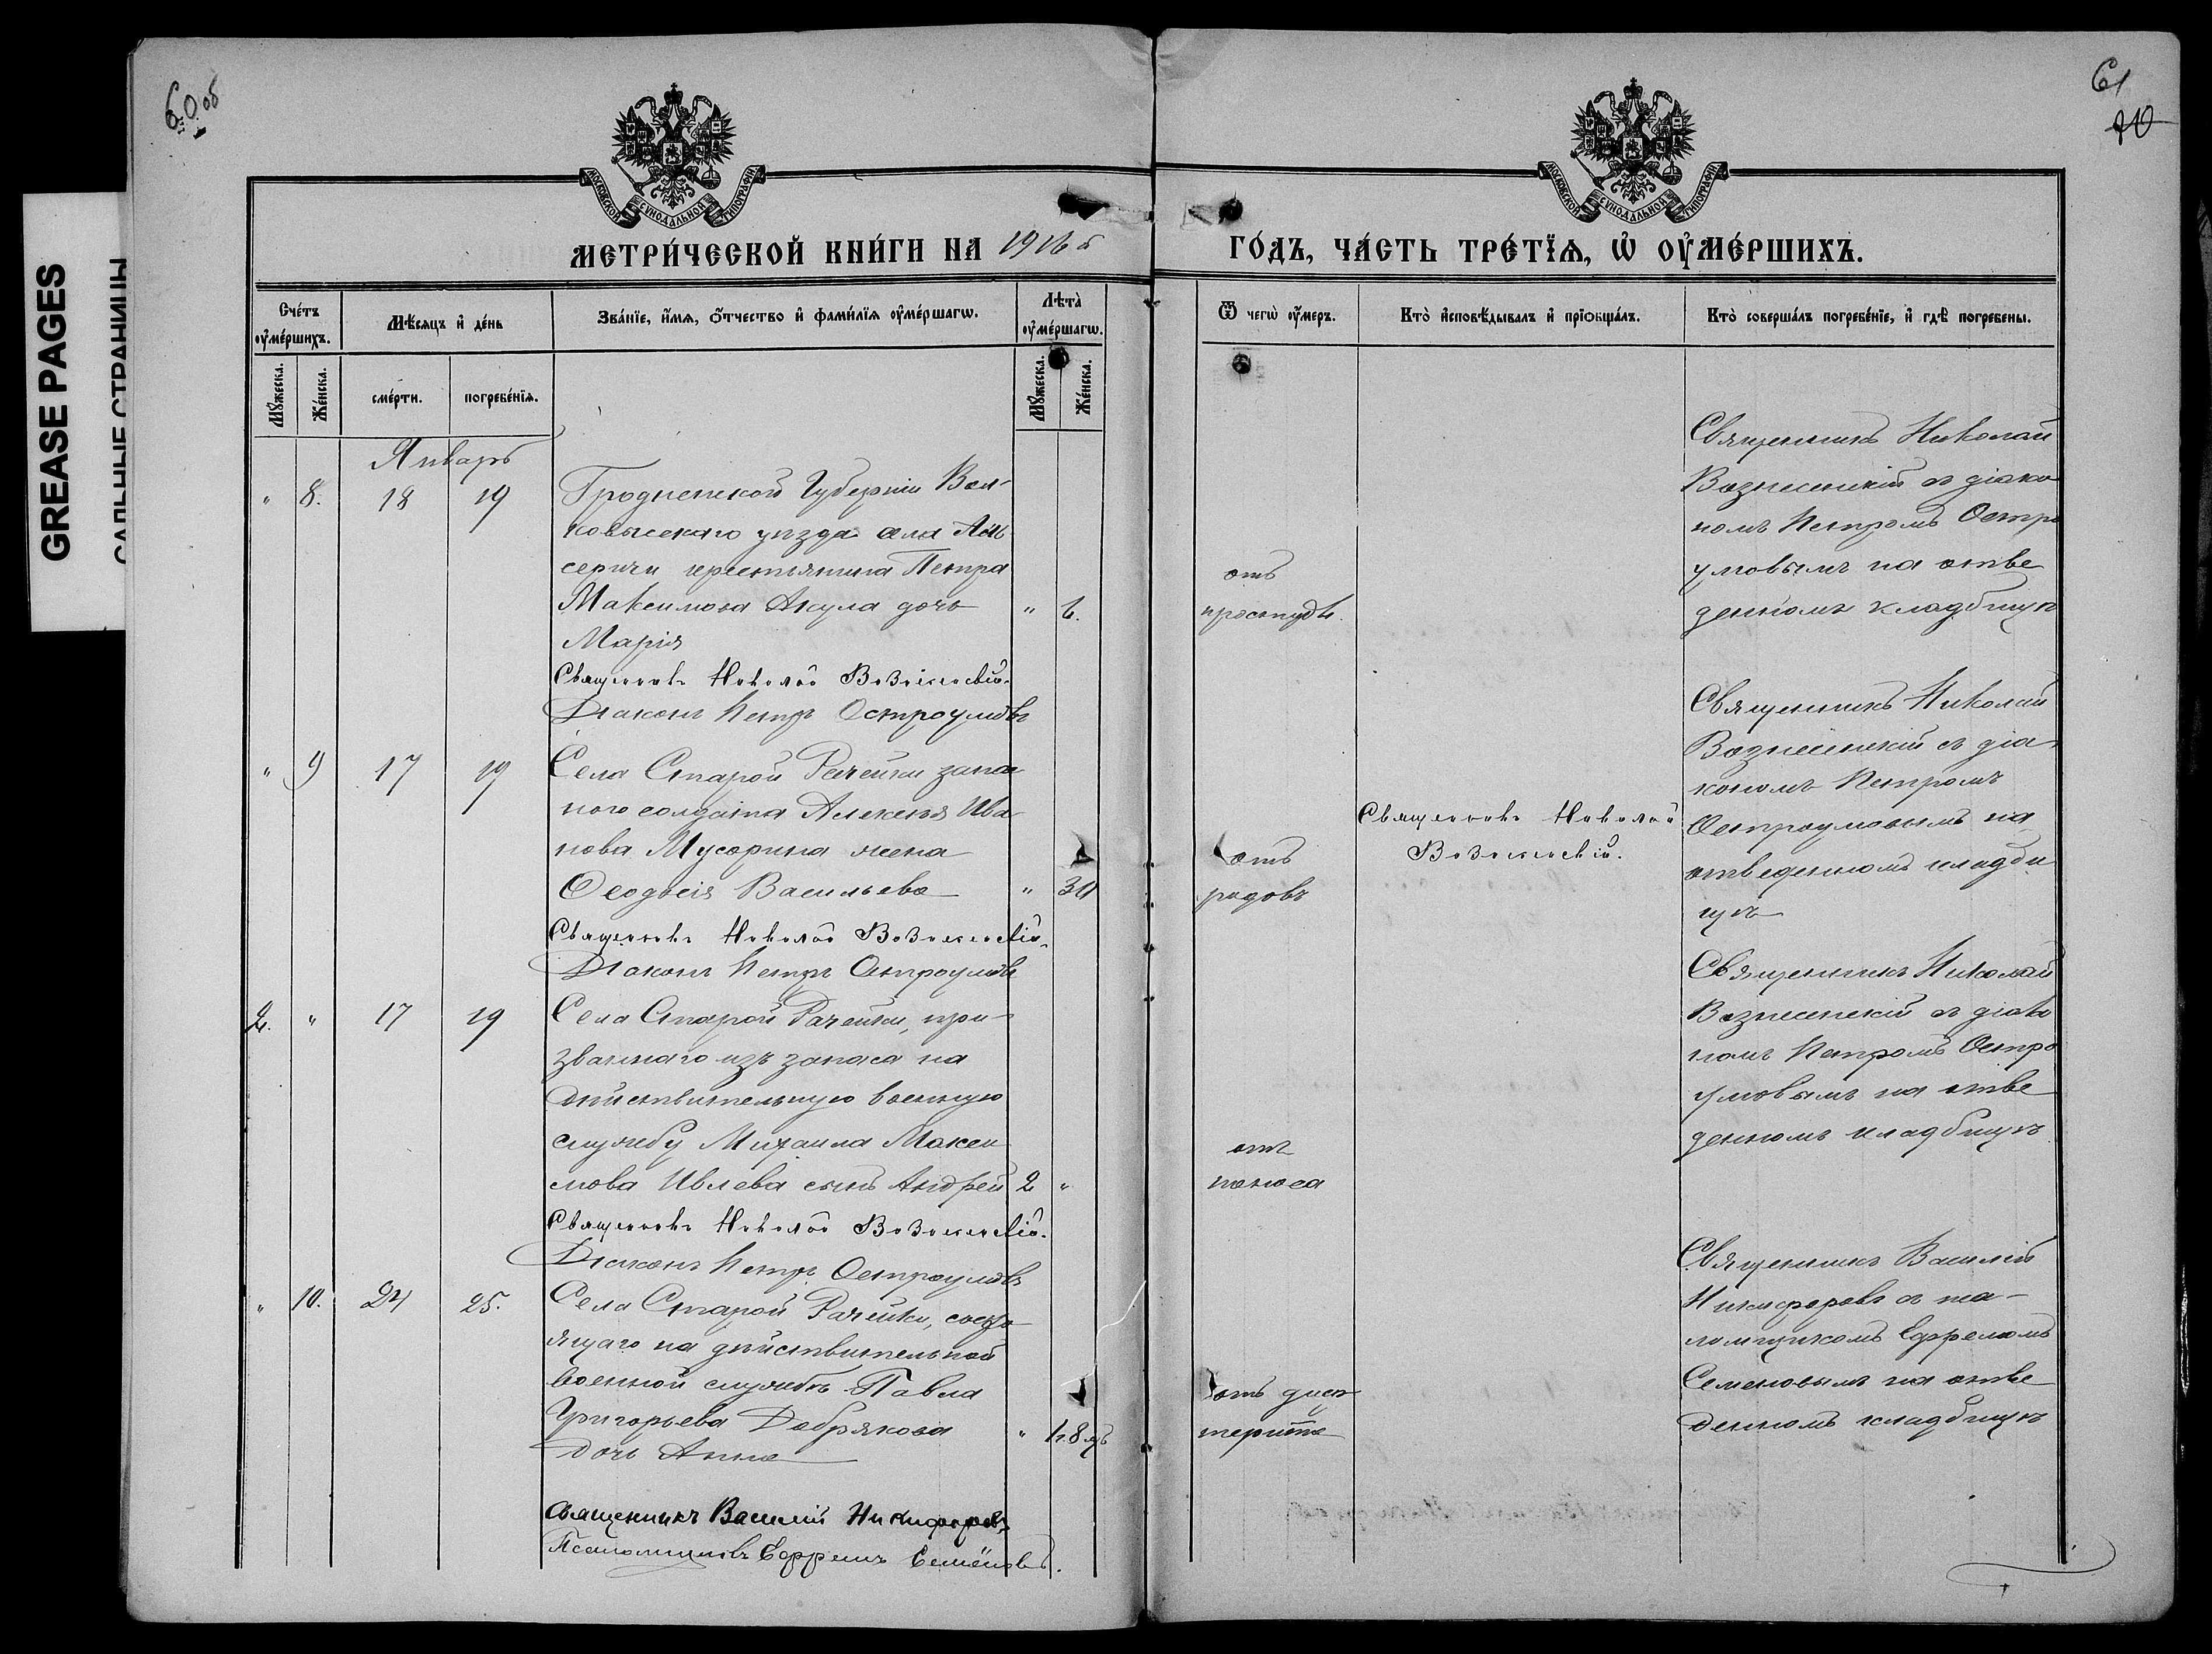 GREASE PAGES
САЛЬНЫЕ СТРАНИЦЫ
60 об
61
МОСКОВСКОЙ СѴНОДАЛЬНОЙ ТИПОГРАФІИ
МОСКОВСКОЙ СѴНОДАЛЬНОЙ ТИПОГРАФІИ
МЕТРИ́ЧЕСКОЙ КНИ́ГИ НА 1916
ГО́ДЪ, ЧА́СТЬ ТРЕ́ТЇѦ, Ѡ҆ ОУ҆МЕ́РШИХЪ.
Сче́тъ оу҆ме́ршихъ.
Мѣ́сяцъ и҆ де́нь
Зва́нїе, и҆́мѧ, ѻ҆́тчество и҆ фами́лїѧ оу҆ме́ршагѡ.
Лѣта̀ оу҆ме́ршагѡ.
Ѿ чегѡ̀ оу҆́меръ.
Кто̀ и҆сповѣ́дывалъ и҆ прїѡбща́лъ.
Кто̀ соверша́лъ погребе́нїе, и҆ гдѣ̀ погребены.
Мꙋ́жеска.
Же́нска.
сме́рти.
погребе́нїѧ.
Мꙋ́жеска.
Же́нска.
Январь
" 8. 18 19
Гродненской Губерніи Вол-
ковыскаго уѣзда села
крестьянина Петра
Максимова Акула дочь
Марія
" 6.
отъ
простуды.
Священникъ Николай
Вознесенскій съ діако
номъ Петромъ Остро
умовымъ на отве
денномъ кладбищѣ
Священникъ Николай Вознесенскій.
Діаконъ Петръ Остроумовъ
" 9 17 19
Села Старой Рачейки запас
ного солдата Алексѣя Ива
нова Мусорина жена
Ѳеодосія Васильева
" 30
отъ
родовъ
Священникъ Николай
Вознесенскій.
Священникъ Николай
Вознесенскій съ діа
кономъ Петромъ
Остроумовымъ на
отведенномъ кладби
щѣ
Священникъ Николай Вознесенскій.
Діаконъ Петръ Остроумовъ
2. " 17 19
Села Старой Рачейки, при-
званнаго изъ запаса на
дѣйствительную военную
службу Михаила Макси
мова Ивлева сынъ Андрей
2 "
отъ
поноса
Священникъ Николай
Вознесенскій съ діако
номъ Петромъ Остро
умовымъ на отве
денномъ кладбищѣ
Священникъ Николай Вознесенскій.
Діаконъ Петръ Остроумовъ
" 10. 24 25.
Села Старой Рачейки, состо
ящаго на дѣйствительной
военной службѣ Павла
Григорьева Добрякова
дочь Анна
"
отъ
Священникъ Василій
Никифоровъ съ пса-
ломщикомъ Ефремомъ
Семеновымъ на отве
денномъ кладбищѣ
Священникъ Василій Никифоровъ
Псаломщикъ Ефремъ Семёновъ.